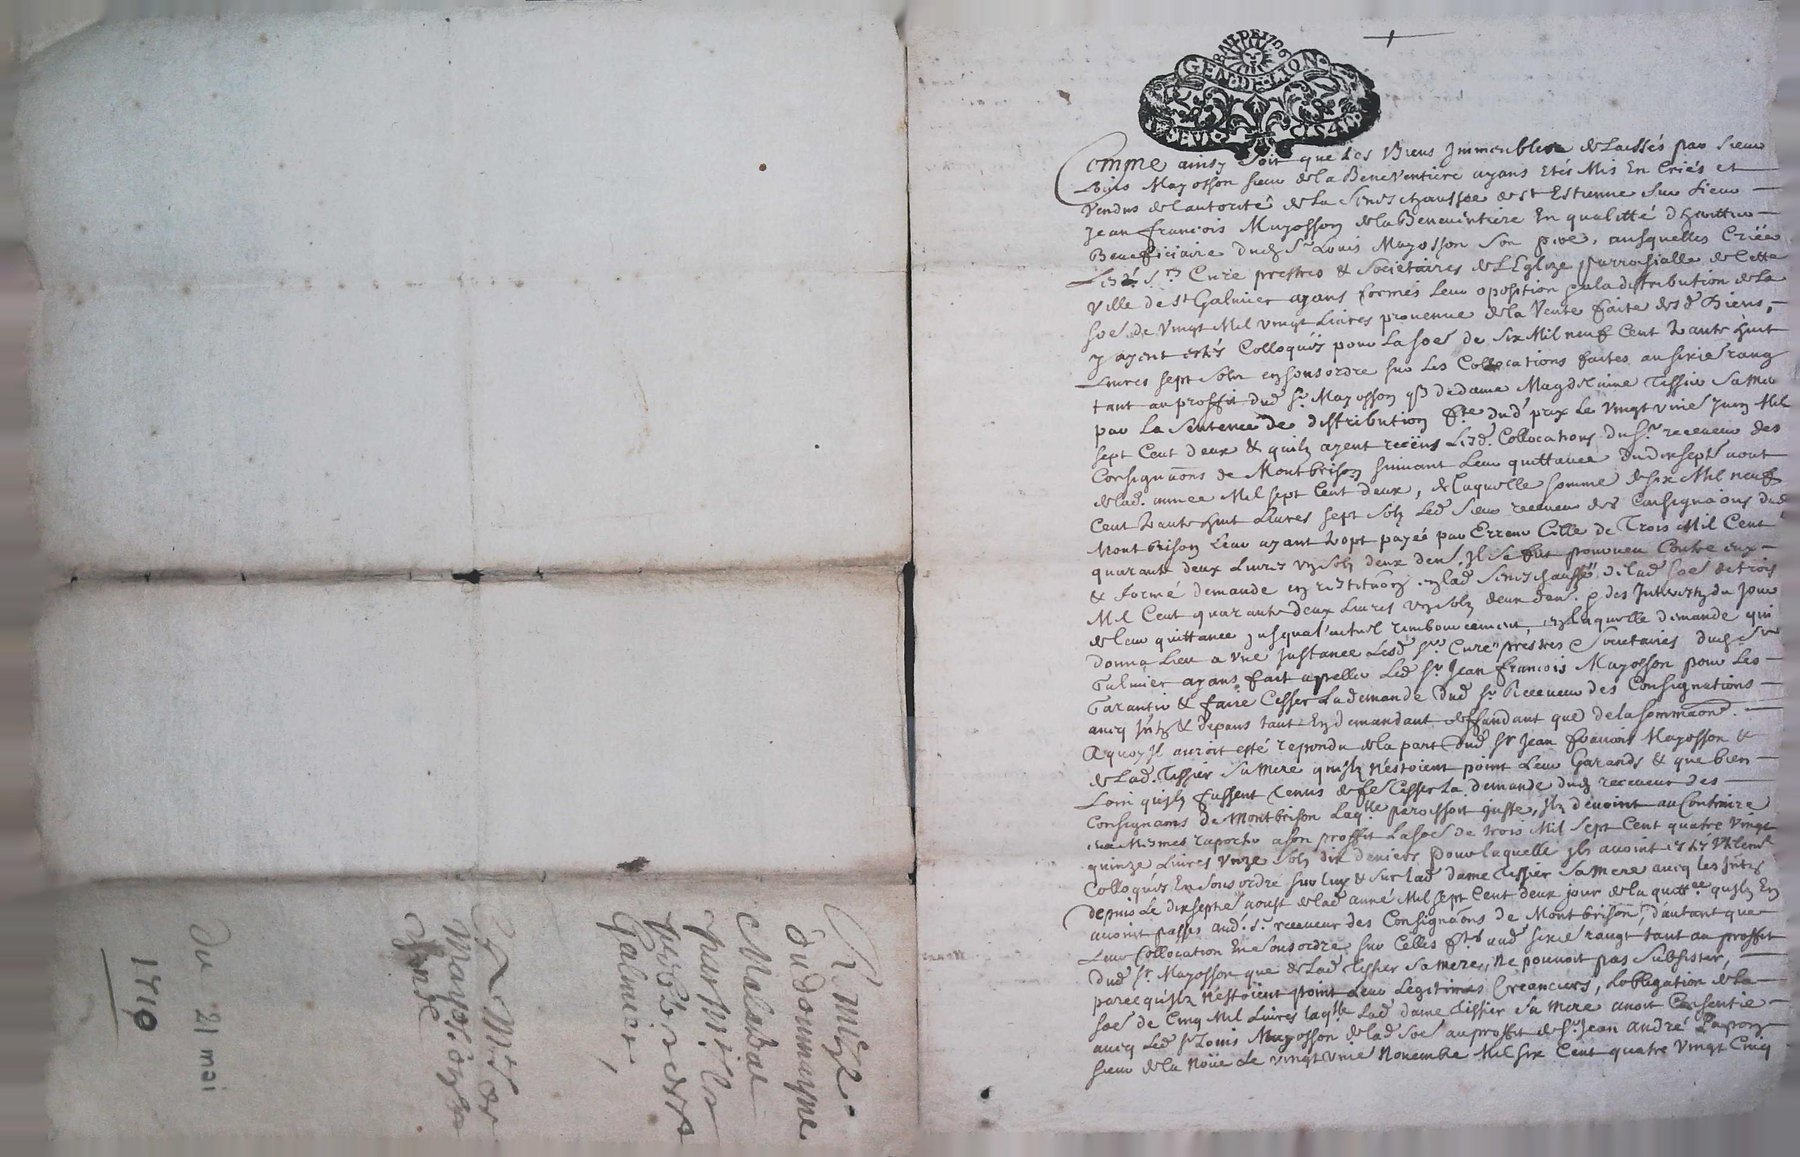 GEN·DE·LION
Comme ainsy soit que les Biens Jmmeubles delaissés par sieur
Louis Mayosson sieur de la Beneventiere ayans Etés Mis En Criés et
Vendus de l'autorité de la Seneschaussee de St Estienne sur sieur
Jean francois Mayosson de la Beneventiere En qualitté d'heritier
Beneficiaire dud Sr Louis Mayosson son pere, ausquelles Criée
Lesd. Srs Curé prestres & Societaires de L'Eglize parrochialle de Cette
Ville de St Galmier ayans formés leur oposition & a la distribution de la
soe de Vingt Mil vingt Livres provenue de la Vente faite desd Biens,
y ayent estés Colloqués pour la soe de six Mil neuf Cent 40ante huit
Livres sept sols en sousordre sur les Collocations faites au sixie rang
tant au proffit dud Sr Mayosson que de dame Magdelaine Tissier sa mere
par la Sentence de distribution fte dud prix le vingt unie Juin Mil
sept Cent deux & quilz ayent reçeus lesd. Collocations du Sr receveur des
Consignaons de Montbrison suivant leur quittance du dixsepte aout
de lad. année Mil sept Cent deux, de laquelle somme de six Mil neuf
Cent 40ante huit Livres sept solz led sieur receveur des Consignaons dud
Montbrison leur ayant payée par Erreur Celle de Trois Mil Cent
quarante deux Livres un solz deux dens, Jl se fut pourveu Contre eux
& formé demande en restitution en lad Seneschaussée de lad soe de trois
Mil Cent quarante deux Livres un solz deux den. & des Jnterestz du Jour
de leur quittance jusqua l'actuel remboursement en laquelle demande qui
donna Lieu a Une Jnstance Lesd Srs Curé prestres Societaires dud St
Galmier ayans fait apeller Led Sr Jean francois Mayosson pour les
Garantir & faire Cesser La demande dud Sr Receveur des Consignations
avec Jntz & depans tant En demandant deffandant que de la sommaon.
A quoy Jl auroit esté repondu de la part dud Sr Jean francois Mayosson &
de Lad. Tissier sa Mere quilz n'estoient point Leur Garands & que bien
Loin quilz fussent tenus de fe Cesser La demande dud receveur des
Consignaons de Montbrison Laqlle paroissoit juste, Jlz devoint au Contraire
eux Mesmes raporter a son proffit La soe de trois Mil sept Cent quatre Vingt
quinze Livres Unze solz dix deniers pour laquelle Jlz avoint estés
Colloqués En sous ordre sur luy & sur lad dame Tissier sa Mere avec les Jntz
depuis Le dixseptie aoust de lad année Mil sept Cent deux jour de la quittce quilz En
avoint passés aud. Sr. receveur des Consignaons de Montbrison, d'autant que
Leur Collocation En sous ordre sur Celles ftes aud sixie rangt tant au proffit
Dud Sr. Mayosson que de Lad Tissier sa Mere, ne pouvoit pas Subsister,
parce quilz n'estoient point Leur Legitimes Creanciers, L'obligation de la
soe de Cinq Mil Livres laqlle Lad dame Tissier sa Mere avoit Consentie
avec Led Sr Louis Mayosson de lad soe au proffit de Sr Jean andré
sieur de la Noüe Le vingt unie Novembre Mil six Cent quatre Vingt Cinq
Galmier,
Du 21 mai
1710